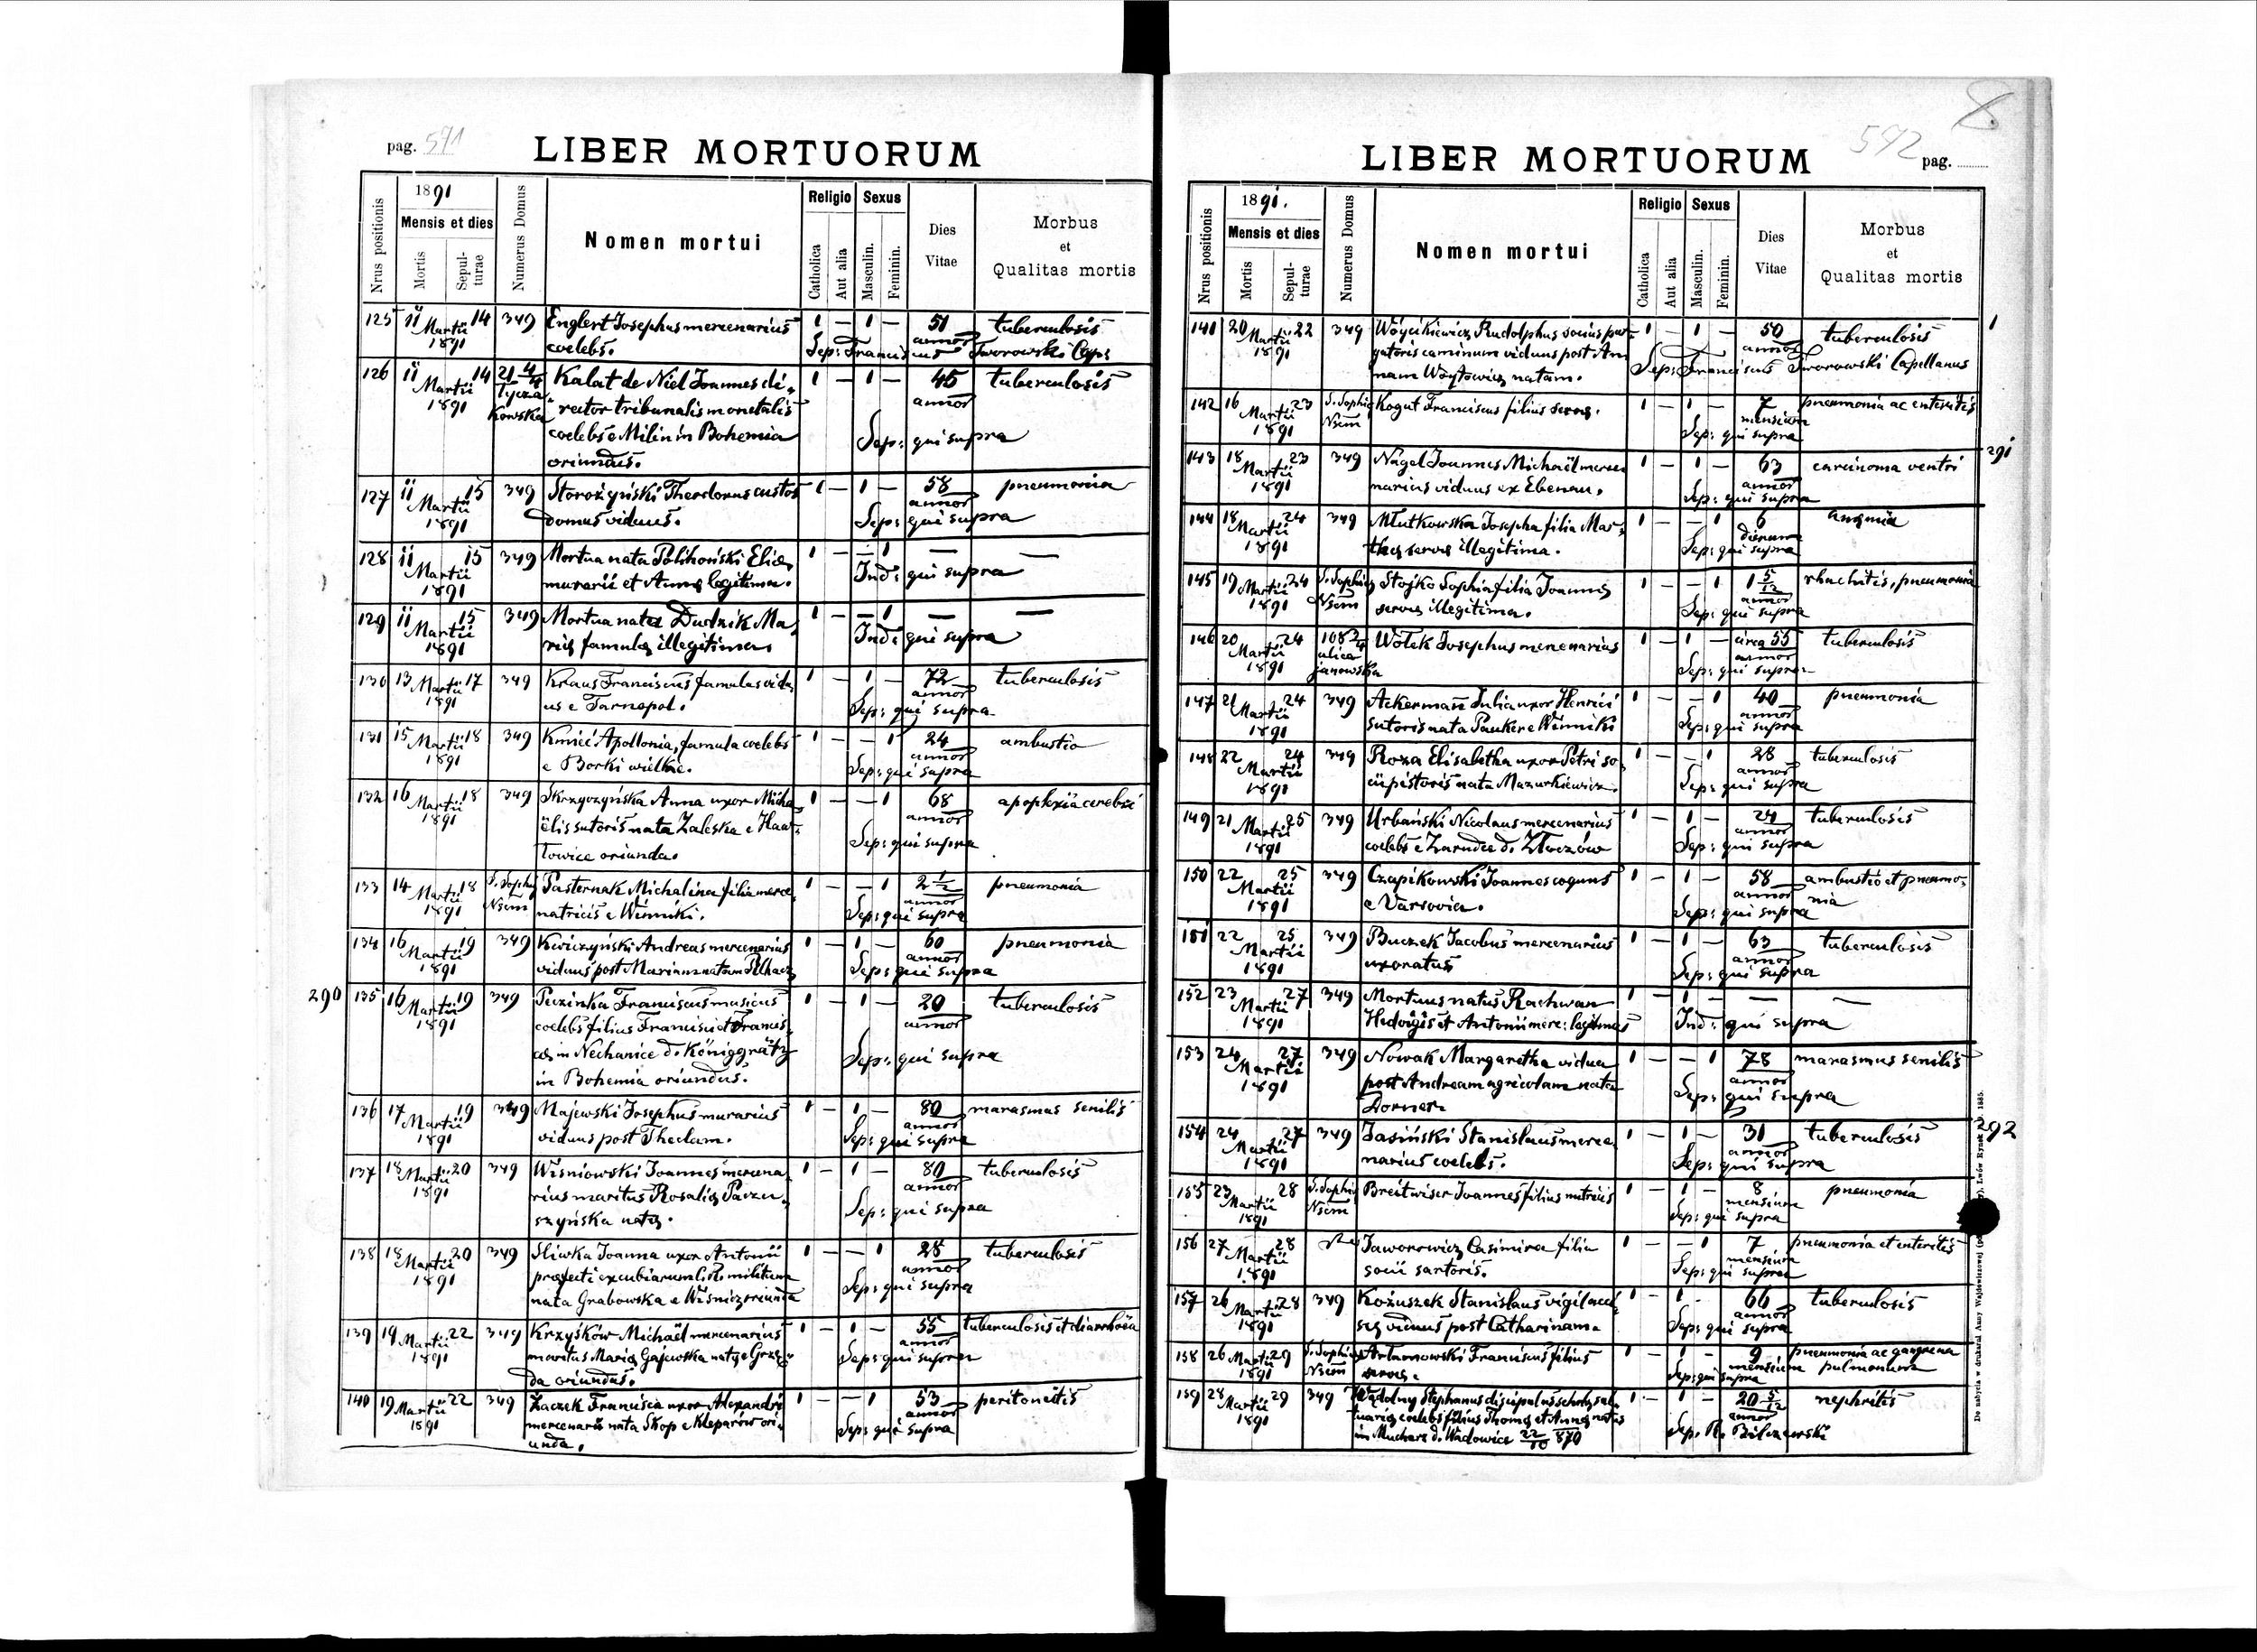 pag. 591
LIBER MORTUORUM
Nrus positionis
1891
Mensis et dies
Mortis
Sepulturae
Numerus Domus
Nomen mortui
Religio
Catholica
Aut alia
Sexus
Masculin.
Feminin.
Dies
Vitae
Morbus
et
Qualitas mortis
125 11 Martii 14 349 Englert Josephus mercenarius 1 — 1 — 51 tuberculosis
1891 coelebs. annor
Sep: Franciscus Tworowski Cap:
126 11 Martii 14 21 4/4 Kalat de Niel Joannes di- 1 — 1 — 45 tuberculosis
1891 Łycza- rector tribunalis monetalis annor
kowska coelebs e Milin in Bohemia Sep: qui supra
oriundus.
127 11 Martii 15 349 Storożyński Theodorus custos 1 — 1 — 58 pneumonia
1891 domus viduus. annor
Sep: qui supra
128 11 Martii 15 349 Mortua nata Eliae 1 — — 1 — —
1891 murarii et Annae legitima. Ind: qui supra
129 11 Martii 15 349 Mortua nata Dudzik Ma- 1 — — 1 — —
1891 riae famulae illegitima. Ind: qui supra
130 13 Martii 17 349 Kraus Franciscus famulus vidu- 1 — 1 — 72 tuberculosis
1891 us e Tarnopol. annor
Sep: qui supra
131 15 Martii 18 349 Kmieć Apollonia, famula coelebs 1 — — 1 24 ambustio
1891 e Borki wielkie. annor
Sep: qui supra
132 16 Martii 18 349 Skrzyczyńska Anna uxor Micha- 1 — — 1 68 apoplexia cerebri
1891 ëlis sutoris nata Zaleska e annor
oriunda. Sep: qui supra
133 14 Martii 18 S. Sophiae Pasternak Michalina filia merce- 1 — — 1 2 1/2 pneumonia
1891 Nsem natricis e Winniki. annor
Sep: qui supra
134 16 Martii 19 349 Kwiczyński Andreas mercenarius 1 — 1 — 60 pneumonia
1891 viduus post Mariam natam annor
Sep: qui supra
290
135 16 Martii 19 349 Pezinka Franciscus musicus 1 — 1 — 20 tuberculosis
1891 coelebs filius Francisci et Francis- annor
cae in Nechanice d. Königgrätz Sep: qui supra
in Bohemia oriundus.
136 17 Martii 19 349 Majewski Josephus murarius 1 — 1 — 80 marasmus senilis
1891 viduus post Theclam. annor
Sep: qui supra
137 18 Martii 20 349 Wiśniowski Joannes mercena- 1 — 1 — 80 tuberculosis
1891 rius maritus Rosaliae Paczu- annor
szyńska natae. Sep: qui supra
138 18 Martii 20 349 Śliwka Joanna uxor Antonii 1 — — 1 28 tuberculosis
1891 praefecti excubiarum C. R. militum annor
nata Grabowska e Wiśnicz oriunda Sep: qui supra
139 19 Martii 22 349 Krzyśków Michaël mercenarius 1 — 1 — 55 tuberculosis et diarrhoëa
1891 maritus Mariae Gajewska natae e Grzę- annor
da oriundus. Sep: qui supra
140 19 Martii 22 349 Żaczek Francisca uxor Alexandri 1 — — 1 53 peritonitis
1891 mercenarii nata Skop e Kleparów ori- annor
unda. Sep: qui supra
592 pag.
LIBER MORTUORUM
Nrus positionis
1891.
Mensis et dies
Mortis
Sepulturae
Numerus Domus
Nomen mortui
Religio
Catholica
Aut alia
Sexus
Masculin.
Feminin.
Dies
Vitae
Morbus
et
Qualitas mortis
141 20 Martii 22 349 Wóycikiewicz Rudolphus socius pur- 1 — 1 — 50 tuberculosis 1
1891 gatoris caminum viduus post An- annor
nam Woytowicz natam. Sep: Franciscus Tworowski Capellanus
142 16 Martii 23 S. Sophiae Kogut Franciscus filius servae. 1 — 1 — 7 pneumonia ac enteritis
1891 Nsem mensium
Sep: qui supra
291
143 18 Martii 23 349 Nagel Joannes Michaël merce- 1 — 1 — 63 carcinoma ventri
1891 narius viduus ex Ebenau. annor
Sep: qui supra
144 18 Martii 24 349 Młutkowska Josepha filia Mar- 1 — — 1 6 anaemia
1891 thae servae illegitima. dierum
Sep: qui supra
145 19 Martii 24 S. Sophiae Stojko Sophia filia Joannae 1 — — 1 1 5/12 rhachitis, pneumonia
1891 Nsem servae illegitima. annor
Sep: qui supra
146 20 Martii 24 108 2/4 Wołek Josephus mercenarius 1 — 1 — circa 55 tuberculosis
1891 ulica annor
janowska Sep: qui supra
147 21 Martii 24 349 Ackermann Julia uxor Henrici 1 — — 1 40 pneumonia
1891 sutoris nata Pauker e Winniki annor
Sep: qui supra
148 22 Martii 24 349 Roza Elisabetha uxor Petri so- 1 — — 1 28 tuberculosis
1891 cii pistoris nata Mazurkiewicz. annor
Sep: qui supra
149 21 Martii 25 349 Urbański Nicolaus mercenarius 1 — 1 — 24 tuberculosis
1891 coelebs e Zarudce d. Złoczów annor
Sep: qui supra
150 22 Martii 25 349 Czapikowski Joannes coquus 1 — 1 — 58 ambustio et pneumo-
1891 e Varsovia. annor nia
Sep: qui supra
151 22 Martii 25 349 Buczek Jacobus mercenarius 1 — 1 — 63 tuberculosis
1891 uxoratus annor
Sep: qui supra
152 23 Martii 27 349 Mortuus natus Rachwan 1 — 1 — — —
1891 Hedvigis et Antonii merc: legitimus Ind: qui supra
153 24 Martii 27 349 Nowak Margaretha vidua 1 — — 1 78 marasmus senilis
1891 post Andream agricolam nata annor
Dorner Sep: qui supra
292
154 24 Martii 27 349 Jasiński Stanislaus merce- 1 — 1 — 31 tuberculosis
1891 narius coelebs. annor
Sep: qui supra
155 23 Martii 28 S. Sophiae Breitwiser Joannes filius nutricis 1 — 1 — 8 pneumonia
1891 Nsem mensium
Sep: qui supra
156 27 Martii 28 Jaworowicz Casimira filia 1 — — 1 7 pneumonia et enteritis
1891 socii sartoris. mensium
Sep: qui supra
157 26 Martii 28 349 Kożuszek Stanislaus vigil 1 — 1 - 66 tuberculosis
1891 viduus post Catharinam. annor
Sep: qui supra
158 26 Martii 29 S. Sophiae Artamowski Franciscus filius 1 — 1 — 9 pneumonia ac gangrena
1891 Nsem servae. mensium pulmonum
Sep: qui supra
159 28 Martii 29 349 Wądolny Stephanus discipulus scholae sal- 1 — 1 20 5/12 nephritis
1891 tuariae coelebs filius Thomae et Annae natus annor
in Muchars d. Wadowice 22/10 870 Sep. R. Bilczewski